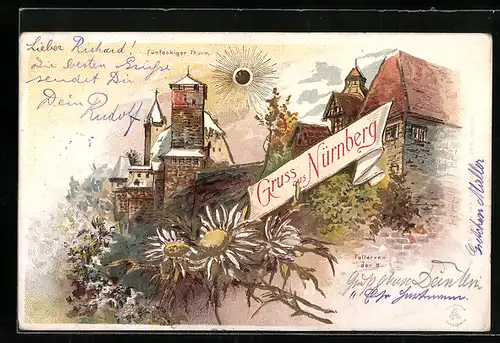 Lieber Richard!
Die besten Grüße
sendet Dir
Dein Rudolf
Fünfeckiger Thurm.
Gruss aus Nürnberg
Gretchen Müller
Folterkam
der B
Dein